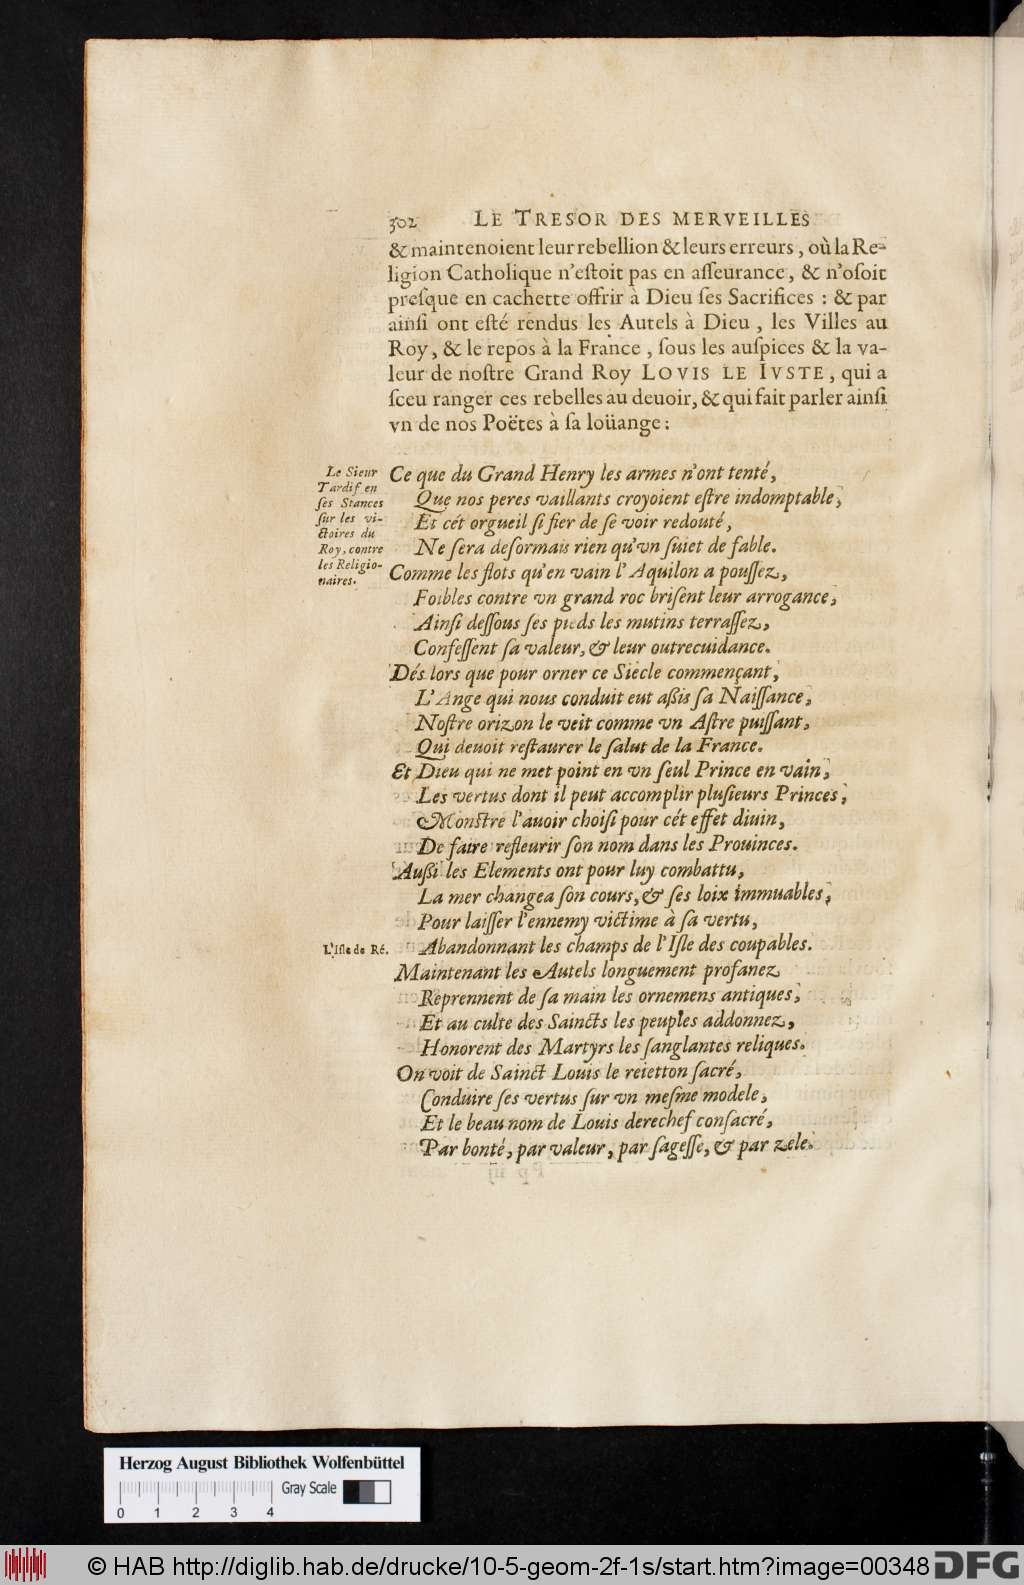 302 LE TRESOR DES MERVEILLES
& maintenoient leur rebellion & leurs erreurs, où la Re-
ligion Catholique n'eſtoit pas en aſſeurance, & n'oſoit
preſque en cachette offrir à Dieu ſes Sacrifices : & par
ainſi ont eſté rendus les Autels à Dieu, les Villes au
Roy, & le repos à la France, ſous les auſpices & la va-
leur de noſtre Grand Roy LOVIS LE IVSTE, qui a
ſceu ranger ces rebelles au deuoir, & qui fait parler ainſi
vn de nos Poëtes à ſa loüange :
Le Sieur
Tardif en
ſes Stances
ſur les vi-
ctoires du
Roy, contre
les Religio-
naires.
Ce que du Grand Henry les armes n'ont tenté,
Que nos peres vaillants croyoient eſtre indomptable,
Et cét orgueil ſi fier de ſe voir redouté,
Ne ſera deſormais rien qu'vn ſuiet de fable.
Comme les flots qu'en vain l'Aquilon a pouſſez,
Foibles contre vn grand roc briſent leur arrogance,
Ainſi deſſous ſes pieds les mutins terraſſez,
Confeſſent ſa valeur, & leur outrecuidance.
Dés lors que pour orner ce Siecle commençant,
L'Ange qui nous conduit eut aßis ſa Naiſſance,
Noſtre orizon le veit comme vn Aſtre puiſſant,
Qui deuoit reſtaurer le ſalut de la France.
Et Dieu qui ne met point en vn ſeul Prince en vain,
Les vertus dont il peut accomplir pluſieurs Princes,
Monſtre l'auoir choiſi pour cét effet diuin,
De faire refleurir ſon nom dans les Prouinces.
Außi les Elements ont pour luy combattu,
La mer changea ſon cours, & ſes loix immuables,
Pour laiſſer l'ennemy victime à ſa vertu,
L'Iſle de Ré.
Abandonnant les champs de l'Iſle des coupables.
Maintenant les Autels longuement profanez
Reprennent de ſa main les ornemens antiques,
Et au culte des Saincts les peuples addonnez,
Honorent des Martyrs les ſanglantes reliques.
On voit de Sainct Louis le reietton ſacré,
Conduire ſes vertus ſur vn meſme modele,
Et le beau nom de Louis derechef conſacré,
Par bonté, par valeur, par ſageſſe, & par zele.
Herzog August Bibliothek Wolfenbüttel
Gray Scale
0 1 2 3 4
© HAB http://diglib.hab.de/drucke/10-5-geom-2f-1s/start.htm?image=00348 DFG